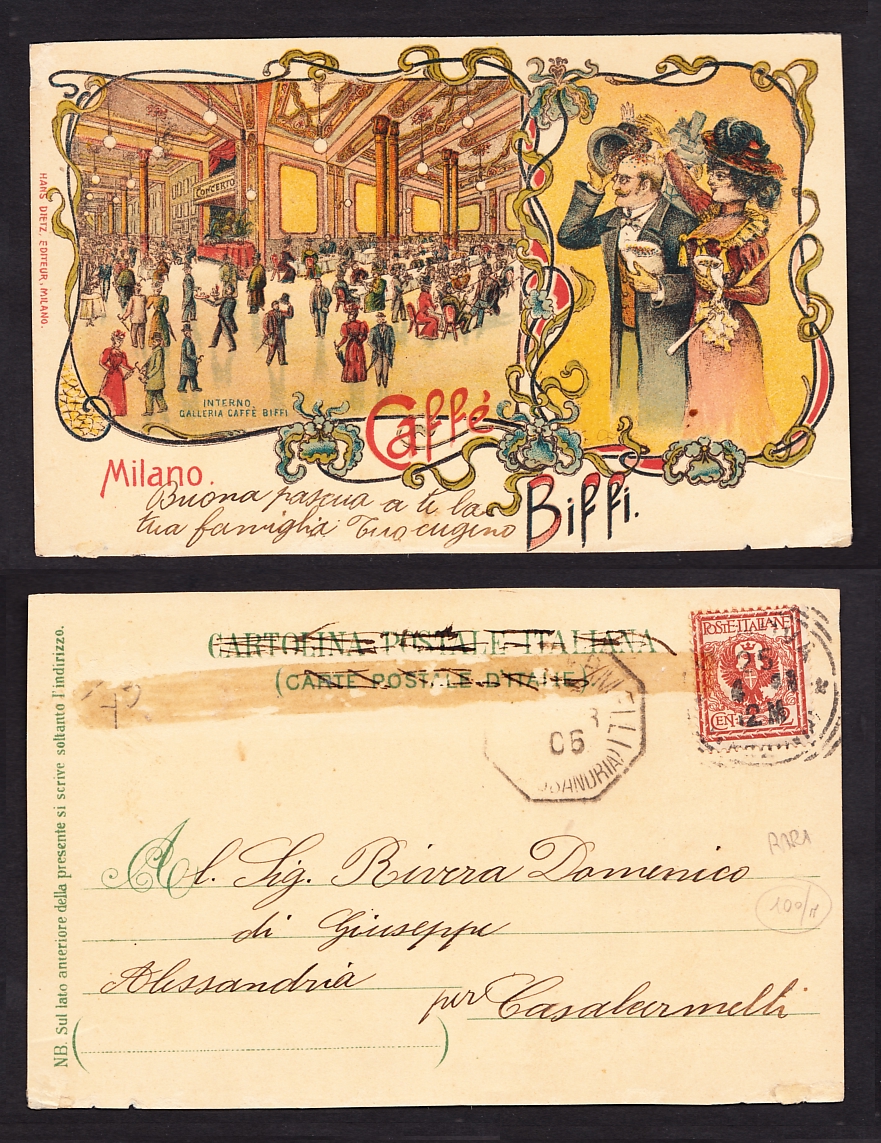 HANS DIETZ, EDITEUR, MILANO.
CONCERTO
INTERNO.
GALLERIA CAFFÈ BIFFI
Caffè
Milano.
Biffi.
Buona pascua a te la
tua famiglia Tuo cugino
NB. Sul lato anteriore della presente si scrive soltanto l'indirizzo.
CARTOLINA POSTALE ITALIANA
(CARTE POSTALE D'ITALIE)
POSTE·ITALIANE
CEN 2
25
4
2 M
05
RARA
100/M
Al. Sig. Rivera Domenico
di Giuseppe
Alessandria
per Casalcermelli